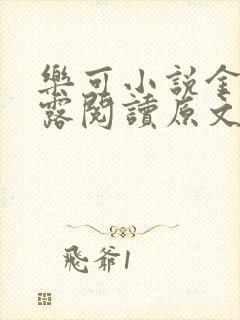 樂可小說金
露閱讀原文
飛爺1